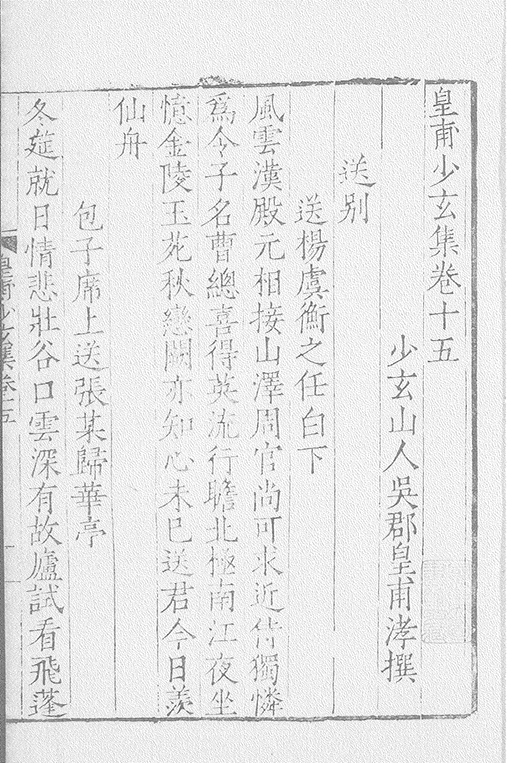 皇甫少玄集卷十五
少玄山人吳郡皇甫涍撰
送別
送楊虞衡之任白下
風雲漢殿元相接山澤周官尚可求近侍獨憐
爲令子名曹總喜得英流行瞻北極南江夜坐
憶金陵玉苑秋戀闕亦知心未已送君今日羨
仙舟
包子席上送張某歸華亭
冬筵就日情悲壯谷口雲深有故廬試看飛蓬
皇甫少玄集卷十五